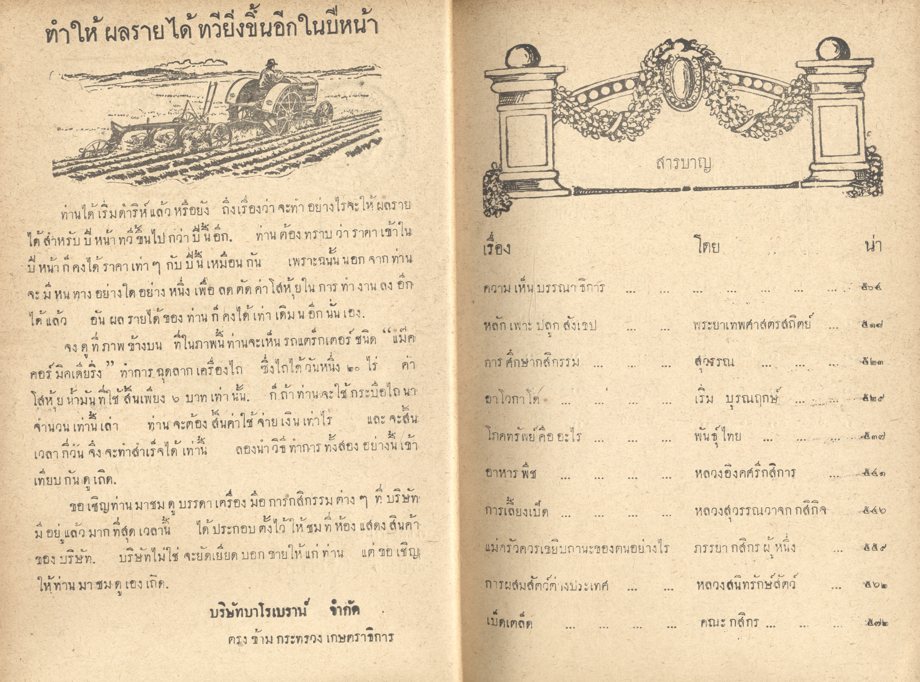 ทำให้ ผลราย ได้ ทวียิ่งขึ้นอีกในปีหน้า
ท่านได้ เริ่มดำริห์ แล้ว หรือยัง ถึงเรื่องว่า จะทำ อย่างไรจะให้ ผลราย
ได้ สำหรับ ปี หน้า ทวี ขึ้นไป กว่า ปี นี้ อีก. ท่าน ต้อง ทราบ ว่า ราคา เข้าใน
ปี หน้า ก็ คงได้ ราคา เท่า ๆ กับ ปี นี้ เหมือน กัน เพราะฉนั้น นอก จาก ท่าน
จะ มี หน ทาง อย่าง ใด อย่าง หนึ่ง เพื่อ ลด ตัด ค่า โสหุ้ย ใน การ ทำ งาน ลง อีก
ได้ แล้ว อัน ผล รายได้ ของ ท่าน ก็ คงได้ เท่า เดิม น อีก นั้น เอง.
จง ดู ที่ ภาพ ข้างบน ที่ในภาพนี้ ท่านจะเห็น รถแตร็กเตอร์ ชนิด “แม็ค
คอร์ มิคเดียริ่ง” ทำการ ฉุดลาก เครื่องไถ ซึ่งไถได้ วันหนึ่ง ๒๐ ไร่ ค่า
โสหุ้ย น้ำมัน ที่ใช้ สิ้นเพียง ๖ บาท เท่า นั้น. ก็ ถ้า ท่าน จะ ใช้ กระบือไถ นา
จำนวน เท่านี้ เล่า ท่าน จะต้อง สิ้นค่าใช้ จ่าย เงิน เท่าไร และ จะ สิ้น
เวลา กี่วัน จึง จะทำสำเร็จได้ เท่านี้ ลองนำ วิธี ทำการ ทั้งสอง อย่างนี้ เข้า
เทียบ กัน ดู เถิด.
ขอ เชิญท่าน มาชม ดู บรรดา เครื่อง มือ การกสิกรรม ต่าง ๆ ที่ บริษัท
มี อยู่ แล้ว มาก ที่สุด เวลานี้ ได้ ประกอบ ตั้งไว้ ให้ ชม ที่ ห้อง แสดง สินค้า
ของ บริษัท. บริษัทไม่ใช่ จะยัดเยียด บอก ขายให้ แก่ ท่าน แต่ ขอ เชิญ
ให้ท่าน มา ชม ดู เอง เถิด.
บริษัทบาโรเบราน์ จำกัด
ตรง ข้าม กระทรวง เกษตราธิการ
สารบาญ
เรื่อง โดย น่า
ความ เห็น บรรณาธิการ ... ... ... ... ... ... ๕๐๔
หลัก เพาะ ปลูก สังเขป ... ... พระยาเทพศาสตรสถิตย์ ... ๕๑๗
การ ศึกษากสิกรรม ... ... ... สุวรรณ ... ... ... ๕๒๓
อาโวกาโด ... ... ... ... เริ่ม บูรณฤกษ์ ... ... ๕๒๙
โภคทรัพย์ คือ อะไร ... ... ... พันธุ์ ไทย ... ... ... ๕๓๗
อาหาร พืช ... ... ... ... หลวงอิงคศรีกสิการ ... ... ๕๔๑
การเลี้ยงเป็ด ... ... ... หลวงสุวรรณวาจก กสิกิจ ๕๔๖
แม่ครัวควรเขยิบถานะของตนอย่างไร ภรรยา กสิกร ผู้ หนึ่ง ... ๕๕๙
การผสมสัตว์ต่างประเทศ ... ... หลวงสนิทรักษ์สัตว์ ... ๕๖๒
เบ็ดเตล็ด ... ... ... ... คณะ กสิกร ... ... ... ๕๗๒